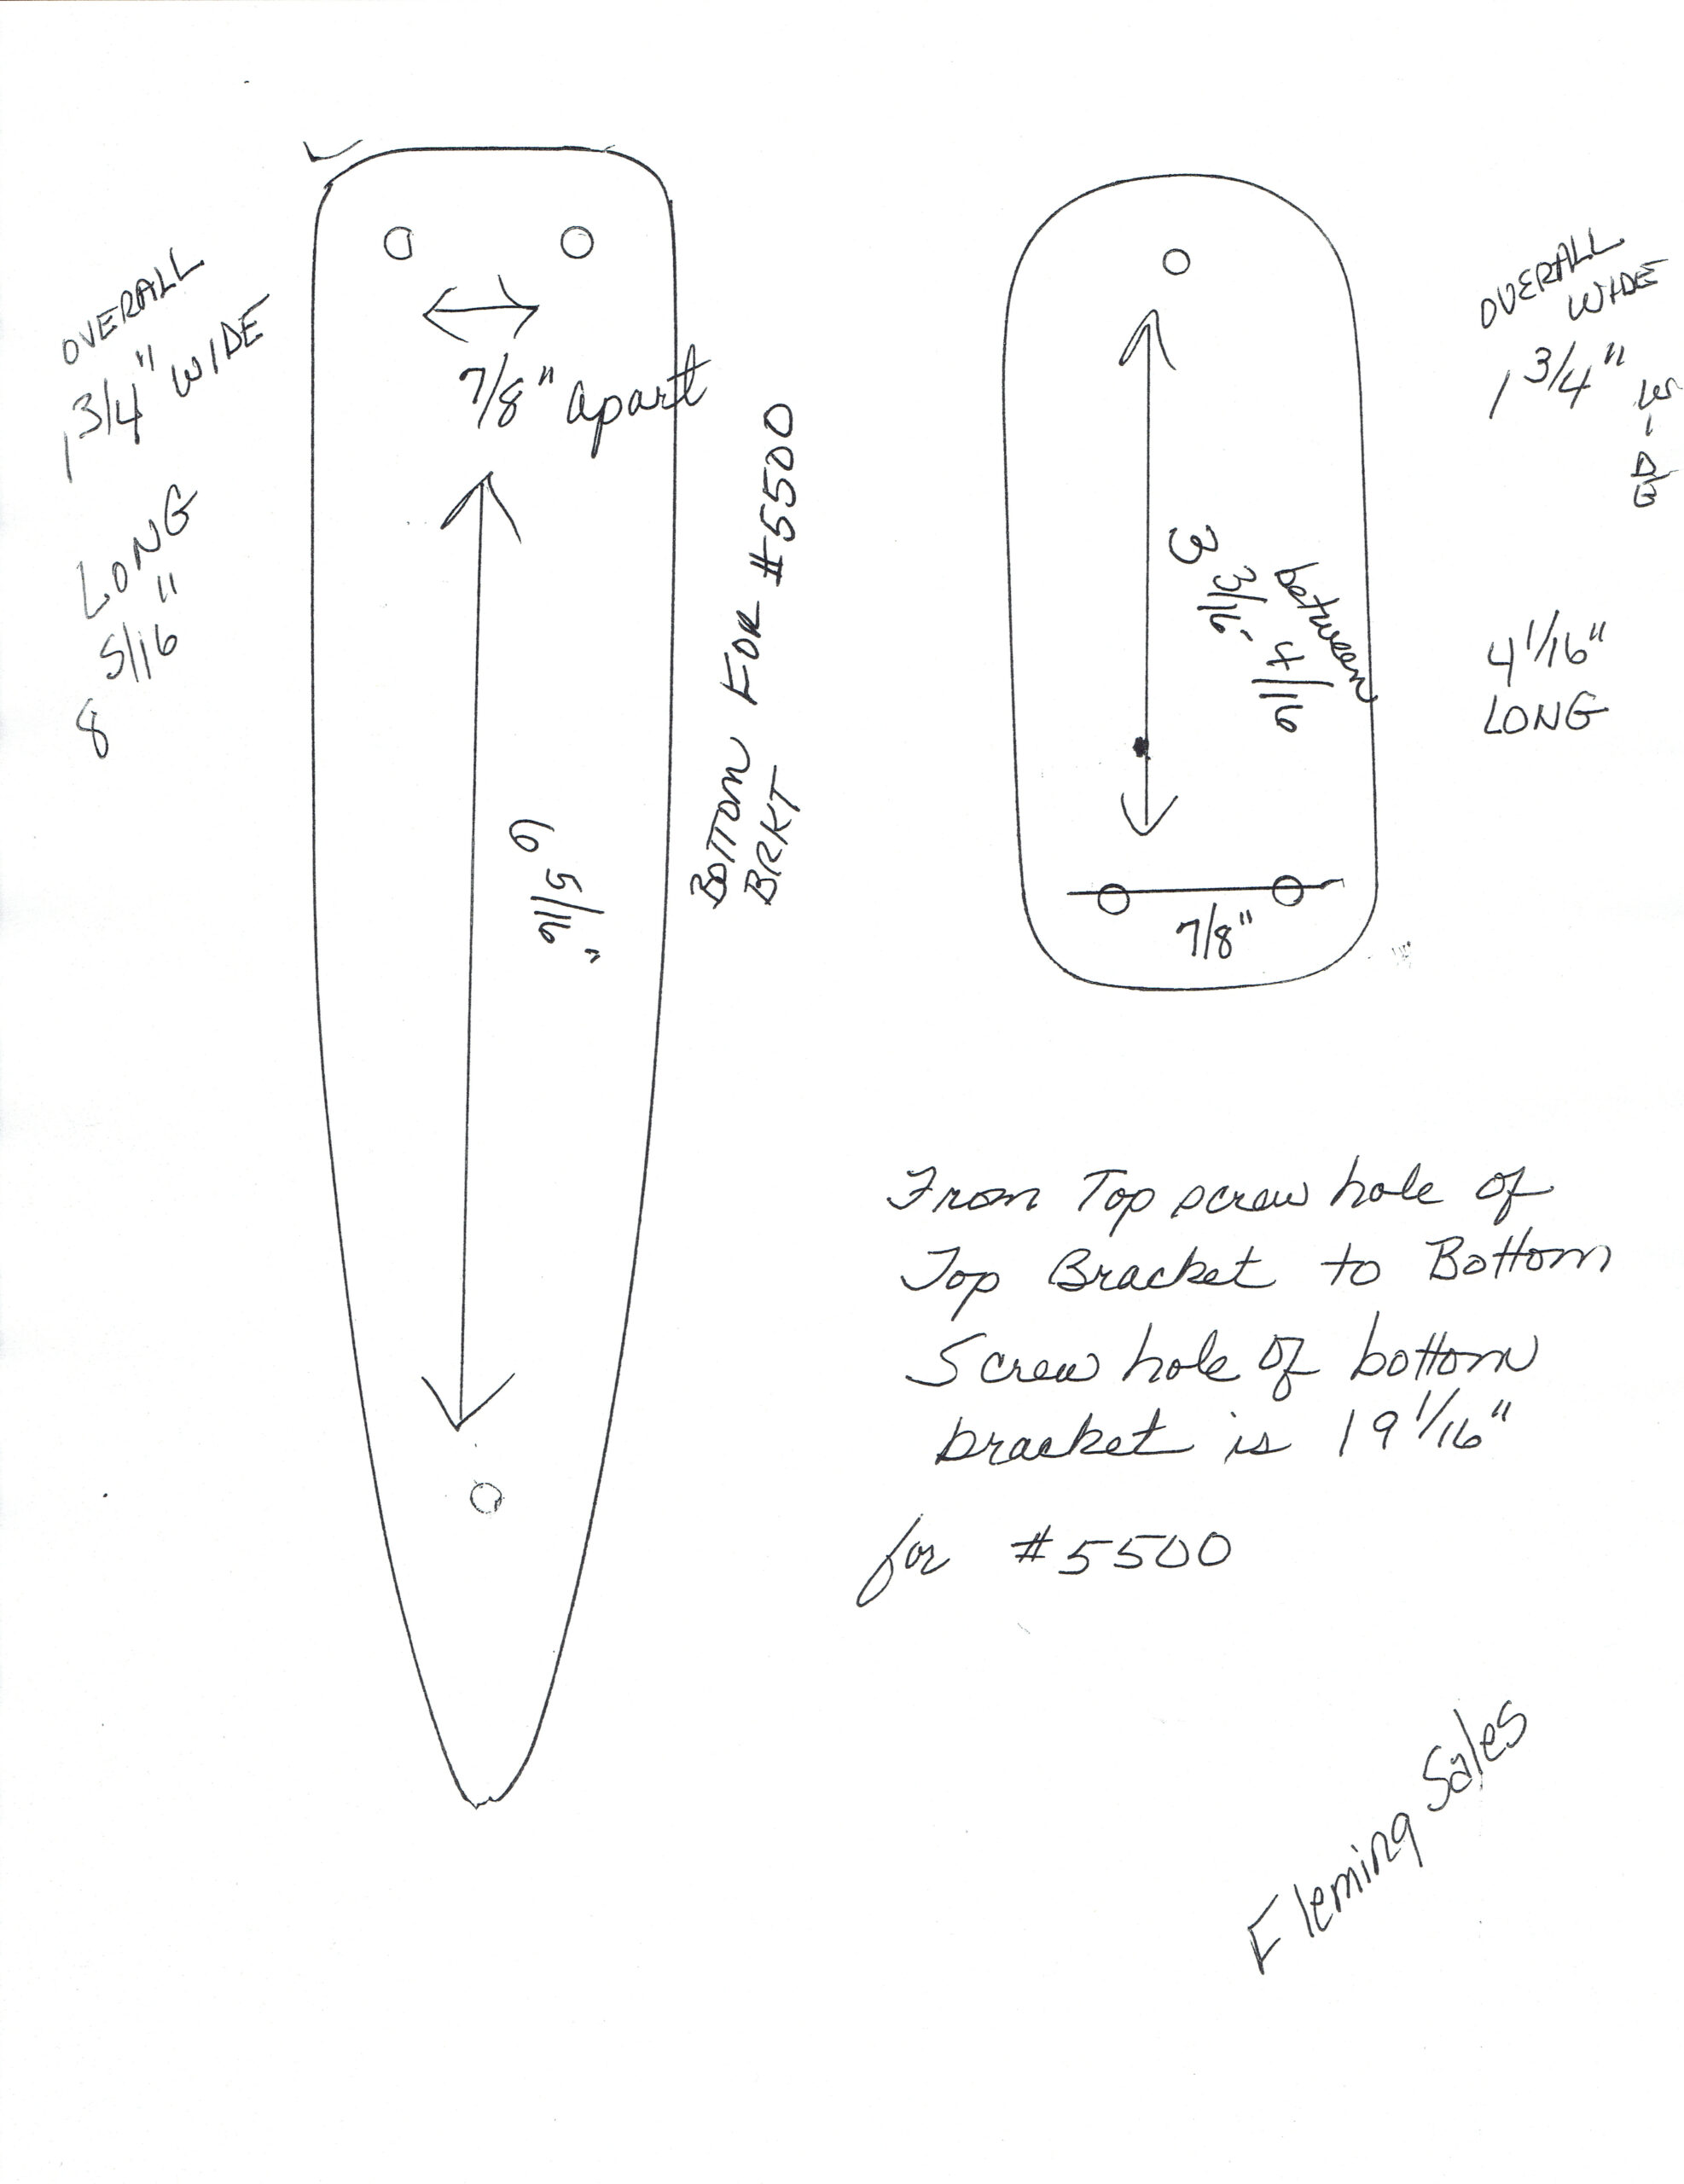 OVERALL
1 3/4" WIDE
8 5/16" LONG
7/8" apart
6 5/16"
BOTTOM FOR #5500
BRKT
OVERALL
WIDE
1 3/4" WIDE
3 3/16 4/16
between
4 1/16"
LONG
7/8"
From Top screw hole of
Top Bracket to Bottom
Screw hole of bottom
bracket is 19 1/16"
for #5500
Fleming Sales